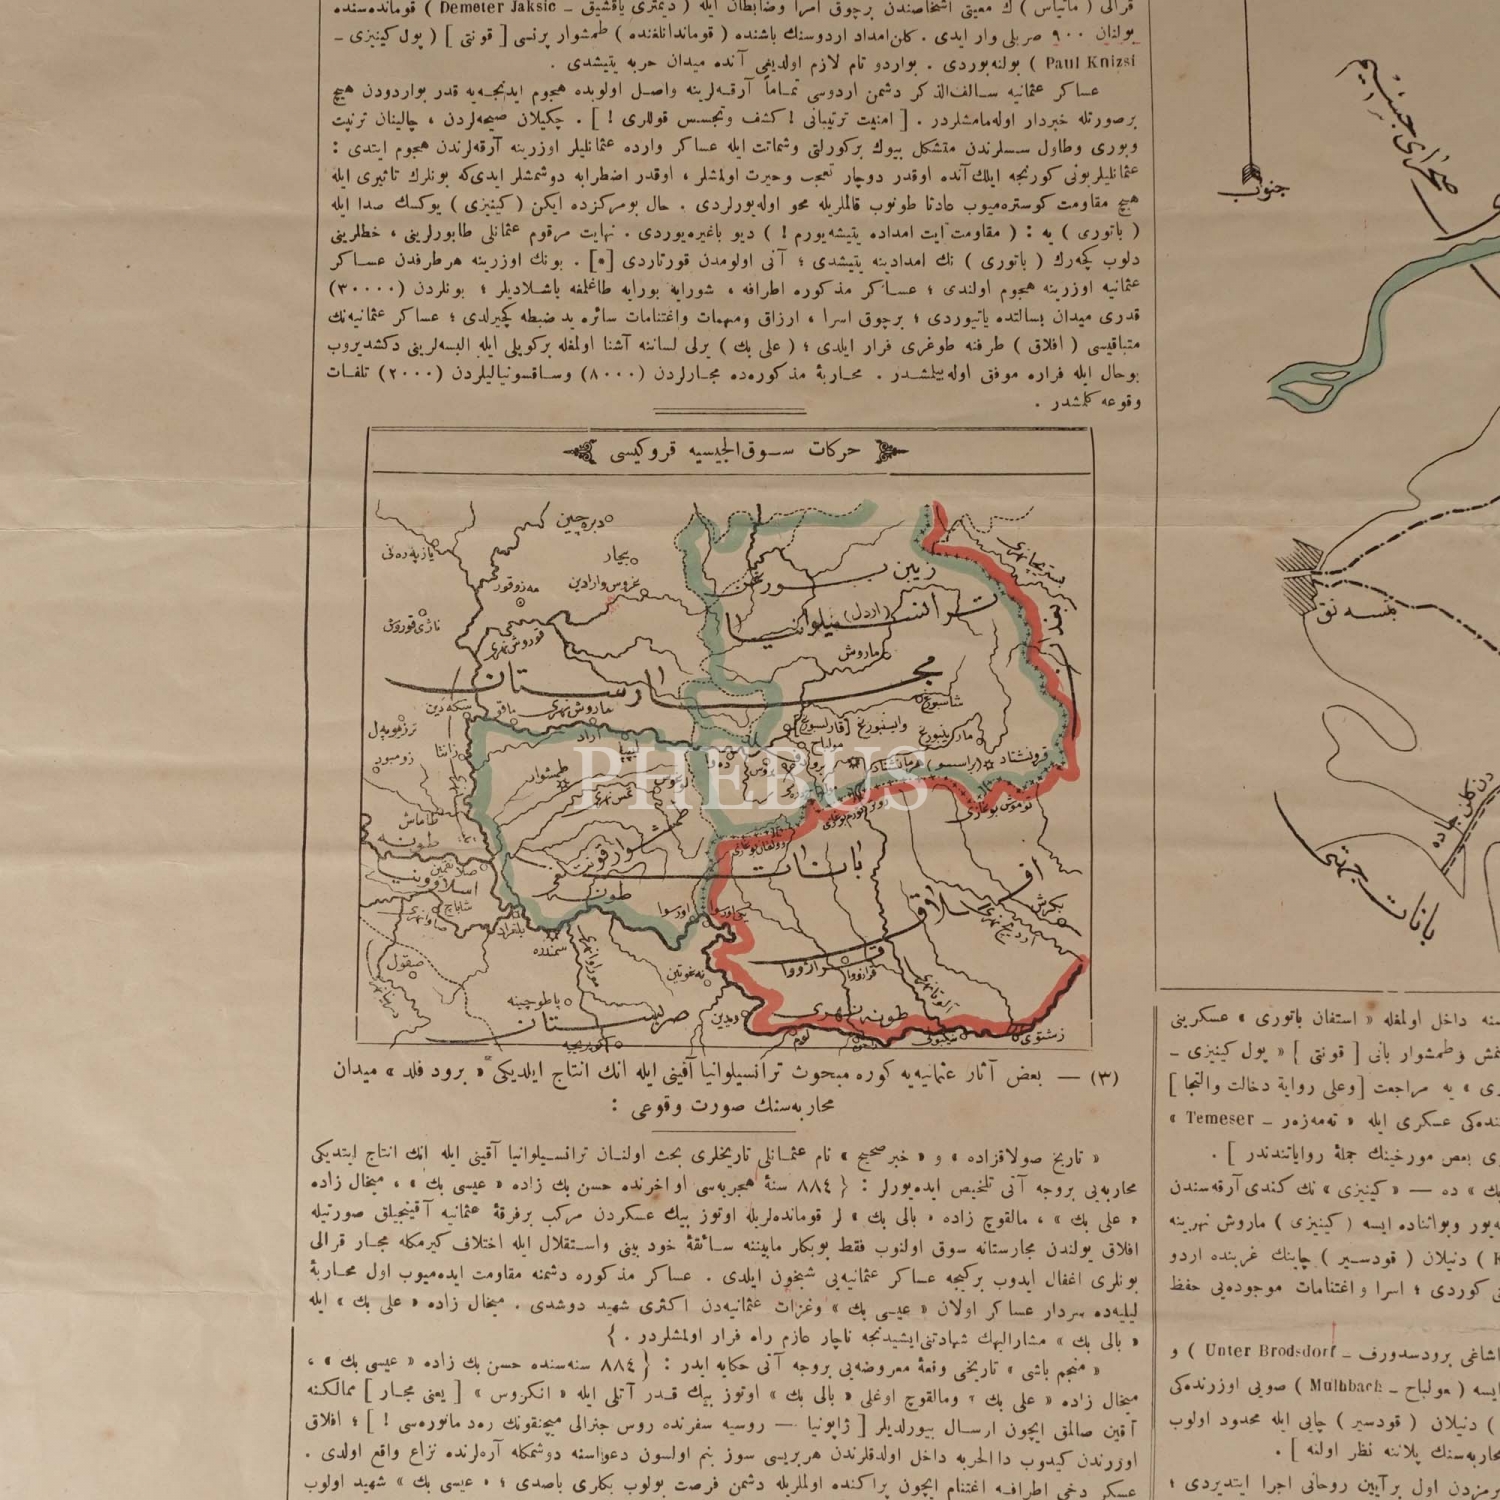 قرالی ( ماتیاس ) ك معیتی اشخاصندن برچوق امرا وضابطان ایله ( دیمتری یاقشیق ـ Demeter Jaksic ) قومانده‌سنده
بولنان ٩٠٠ صربلی وار ایدی . کلن امداد اردوسنك باشنده ( قوماندانلغنده ) طمشوار پرنسی [ قونتی ] ( پول کینیزی ـ
Paul Knizsi ) بولنه‌یوردی . بواردو تام لازم اولدیغی آنده میدان حربه یتیشدی .
عساکر عثمانیه سالف‌الذکر دشمن اردوسی تماماً آرقه‌لرینه واصل اولوبده هجوم ایدنجه‌یه قدر بواردودن هیچ
برصورتله خبردار اوله‌مامشلردر . [ امنیت ترتیباتی ! کشف وتجسس قوللری ! ] . چکیلان صیحه‌لردن ، چالینان ترنپت
وبوری وطاول سسلرندن متشکل بیوك برکورلتی وشماتت ایله عساکر وارده عثمانلیلر اوزرینه آرقه‌لرندن هجوم ایتدی :
عثمانلیلر بونی کورنجه ایلك آنده اوقدر دوچار تعجب وحیرت اولمشلر ، اوقدر اضطرابه دوشمشلر ایدی‌که بونلرك تاثیری ایله
هیچ مقاومت کوستره‌میوب عادتا طوتوب قالملریله محو اوله‌یورلردی . حال بومرکزده ایکن ( کینیزی ) یوکسك صدا ایله
( باتوری ) یه : ( مقاومت ایت امداده یتیشه‌یورم ! ) دیو باغیره‌یوردی . نهایت مرقوم عثمانلی طابورلرینی ، خطلرینی
دلوب کچه‌رك ( باتوری ) نك امدادینه یتیشدی ؛ آنی اولومدن قورتاردی [*] . بونك اوزرینه هرطرفدن عساکر
عثمانیه اوزرینه هجوم اولندی ؛ عساکر مذکوره اطرافه ، شورایه بورایه طاغلمغه باشلادیلر ؛ بونلردن (٣٠٠٠٠)
قدری میدان بسالتده یاتیوردی ؛ برچوق اسرا ، ارزاق ومهمات واغتنامات سائره ید ضبطه کچیرلدی ؛ عساکر عثمانیه‌نك
متباقیسی ( افلاق ) طرفنه طوغری فرار ایلدی ؛ ( علی بك ) یرلی لساننه آشنا اولمغله برکویلی ایله البسه‌لرینی دکشدیروب
بوحال ایله فراره موفق اوله‌بیلمشدر . محاربهٔ مذکوره‌ده مجارلردن (٨٠٠٠) وساقسونیالیلردن (٢٠٠٠) تلفات
وقوعه کلمشدر .
حرکات سوق‌الجیشیه قروکیسی
دبره‌چین
بجار
غروس واردین
مه‌زوقور
قوروش نهری
زیبن بورغن
ترانسیلوانیا
(اردل)
ماروش
مجارستان
ماروش نهری
شاسبورغ
قرونشتاد
آراد
لیپا
طمشوار
طمشوار قونتلغی
بانات
افلاق
طونه
اسلاوونیا
بلغراد
سمندره
اورسوا
صربستان
ودین
طونه نهری
زشتوی
نیکبولی
بکرش
PHEBUS
جنوب
صحرای جسیم
بانات جهتی
(٣) — بعض آثار عثمانیه‌یه کوره مبحوث ترانسیلوانیا آقینی ایله انك انتاج ایلدیکی « برود فلد » میدان
محاربه‌سنك صورت وقوعی :
« تاریخ صولاقزاده » و « خبر صحیح » نام عثمانلی تاریخلری بحث اولنان ترانسیلوانیا آقینی ایله انك انتاج ایتدیکی
محاربه‌یی بروجه آتی تلخیص ایده‌یورلر : { ٨٨٤ سنهٔ هجریه‌سی اواخرنده حسن بك زاده « عیسی بك » ، میخال زاده
« علی بك » ، مالقوچ زاده « بالی بك » لر قومانده‌لریله اوتوز بیك عسکردن مرکب برفرقهٔ عثمانیه آقینجیلق صورتیله
افلاق یولندن مجارستانه سوق اولنوب فقط بوبکلر مابیننه سائقهٔ خود بینی واستقلال ایله اختلاف کیرمکله مجار قرالی
بونلری اغفال ایدوب برکیجه عساکر عثمانیه‌یی شبخون ایلدی . عساکر مذکوره دشمنه مقاومت ایده‌میوب اول محاربهٔ
لیلیه‌ده سردار عساکر اولان « عیسی بك » وغزات عثمانیه‌دن اکثری شهید دوشدی . میخال زاده « علی بك » ایله
« بالی بك » مشارالیهك شهادتنی ایشیدنجه ناچار عازم راه فرار اولمشلردر . }
« منجم باشی » تاریخی وقعهٔ معروضه‌یی بروجه آتی حکایه ایدر : { ٨٨٤ سنه‌سنده حسن بك زاده « عیسی بك » ،
میخال زاده « علی بك » ومالقوچ اوغلی « بالی بك » اوتوز بیك قدر آتلی ایله « انکروس » [ یعنی مجار ] ممالکنه
آقین صالمق ایچون ارسال بیورلدیلر [ ژاپونیا — روسیه سفرنده روس جنرالی میچنقونك ره‌د مانوره‌سی ! ] ؛ افلاق
اوزرندن کیدوب دارالحربه داخل اولدقلرندن هربریسی سوز بنم اولسون دعواسنه دوشمکله آره‌لرنده نزاع واقع اولدی .
عسکر دخی اطرافه اغتنام ایچون پراکنده اولملریله دشمن فرصت بولوب بکلری باصدی ؛ « عیسی بك » شهید اولوب
داخل اولمغله « استفان باتوری » عسکرینی
وطمشوار بانی [ قونتی ] « پول کینیزی ـ
» یه مراجعت [ وعلی روایة دخالت والتجا ]
عسکری ایله « ته‌مه‌زه‌ر ـ Temeser »
بعض مورخینك جملهٔ روایاتندندر ] .
» ده — « کینیزی » نك کندی آرقه‌سندن
وبواثناده ایسه ( کینیزی ) ماروش نهرینه
) دنیلان ( قودسیر ) چاینك غربنده اردو
کوردی ؛ اسرا واغتنامات موجوده‌یی حفظ
اشاغی برودسدورف ـ Unter Brodsdorf ) و
ایسه ( مولباح ـ Mulhbach ) صویی اوزرنده‌کی
) دنیلان ( قودسیر ) چایی ایله محدود اولوب
محاربه‌سنك پلاننه نظر اولنه ] .
اول برآیین روحانی اجرا ایتدیردی ؛